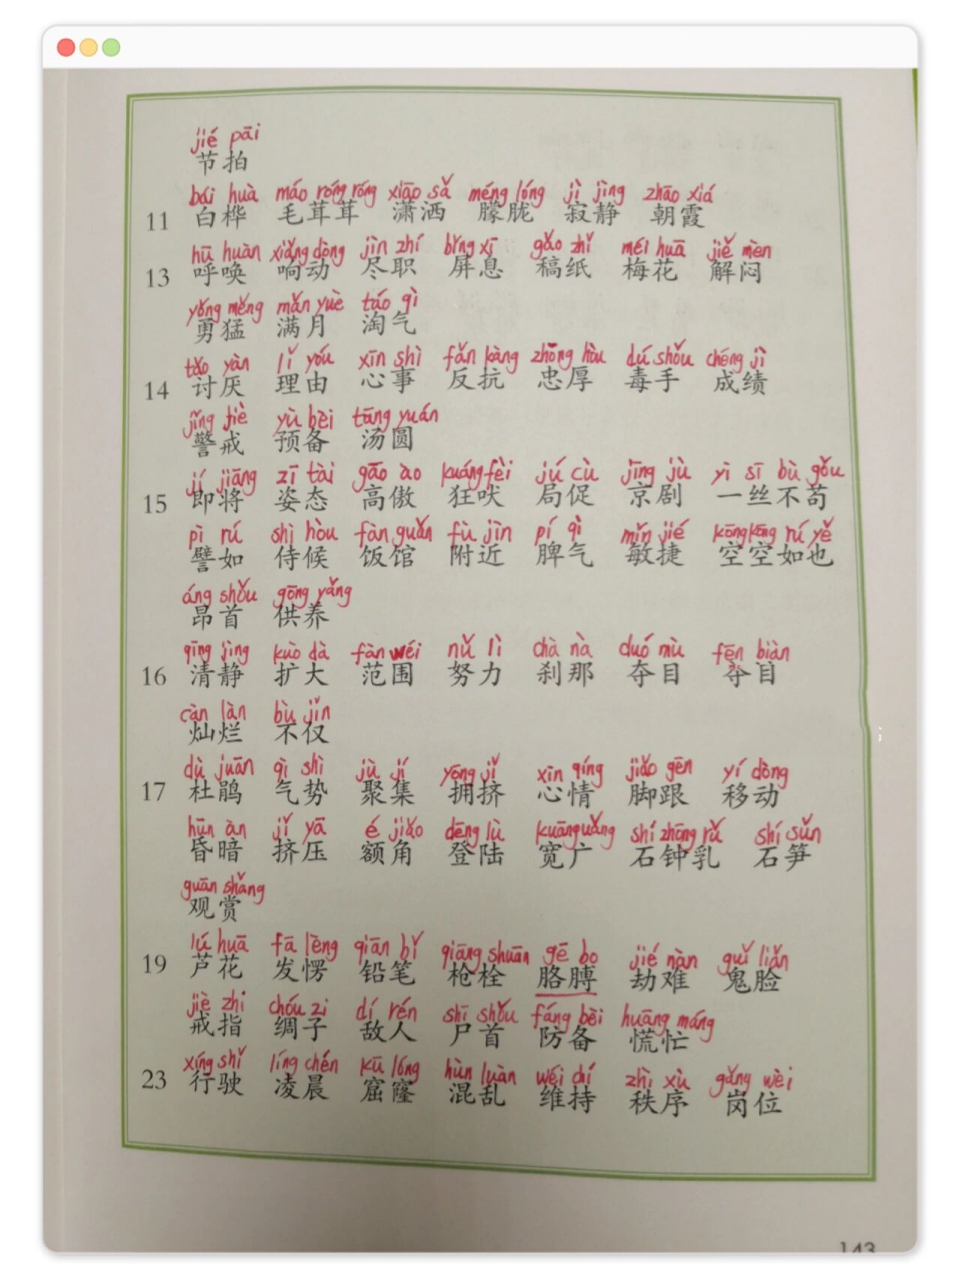 jié pāi
节拍
bái huà máo róng róng xiāo sǎ méng lóng jì jìng zhāo xiá
11 白桦 毛茸茸 潇洒 朦胧 寂静 朝霞
hū huàn xiǎng dòng jìn zhí bǐng xī gǎo zhǐ méi huā jiě mèn
13 呼唤 响动 尽职 屏息 稿纸 梅花 解闷
yǒng měng mǎn yuè táo qì
勇猛 满月 淘气
tǎo yàn lǐ yóu xīn shì fǎn kàng zhōng hòu dú shǒu chéng jì
14 讨厌 理由 心事 反抗 忠厚 毒手 成绩
jǐng jiè yù bèi tāng yuán
警戒 预备 汤圆
jí jiāng zī tài gāo ào kuáng fèi jú cù jīng jù yì sī bù gǒu
15 即将 姿态 高傲 狂吠 局促 京剧 一丝不苟
pì rú shì hòu fàn guǎn fù jìn pí qì mǐn jié kōng kōng rú yě
譬如 侍候 饭馆 附近 脾气 敏捷 空空如也
áng shǒu gōng yǎng
昂首 供养
qīng jìng kuò dà fàn wéi nǔ lì chà nà duó mù fēn biàn
16 清静 扩大 范围 努力 刹那 夺目 夺目
càn làn bù jǐn
灿烂 不仅
dù juān qì shì jù jí yōng jǐ xīn qíng jiǎo gēn yí dòng
17 杜鹃 气势 聚集 拥挤 心情 脚跟 移动
hūn àn jǐ yā é jiǎo dēng lù kuān guǎng shí zhōng rǔ shí sǔn
昏暗 挤压 额角 登陆 宽广 石钟乳 石笋
guān shǎng
观赏
lú huā fā lèng qiān bǐ qiāng shuān gē bo jié nàn guǐ liǎn
19 芦花 发愣 铅笔 枪栓 胳膊 劫难 鬼脸
jiè zhi chóu zi dí rén shī shǒu fáng bèi huāng máng
戒指 绸子 敌人 尸首 防备 慌忙
xíng shǐ líng chén kū lóng hùn luàn wéi chí zhì xù gǎng wèi
23 行驶 凌晨 窟窿 混乱 维持 秩序 岗位
143